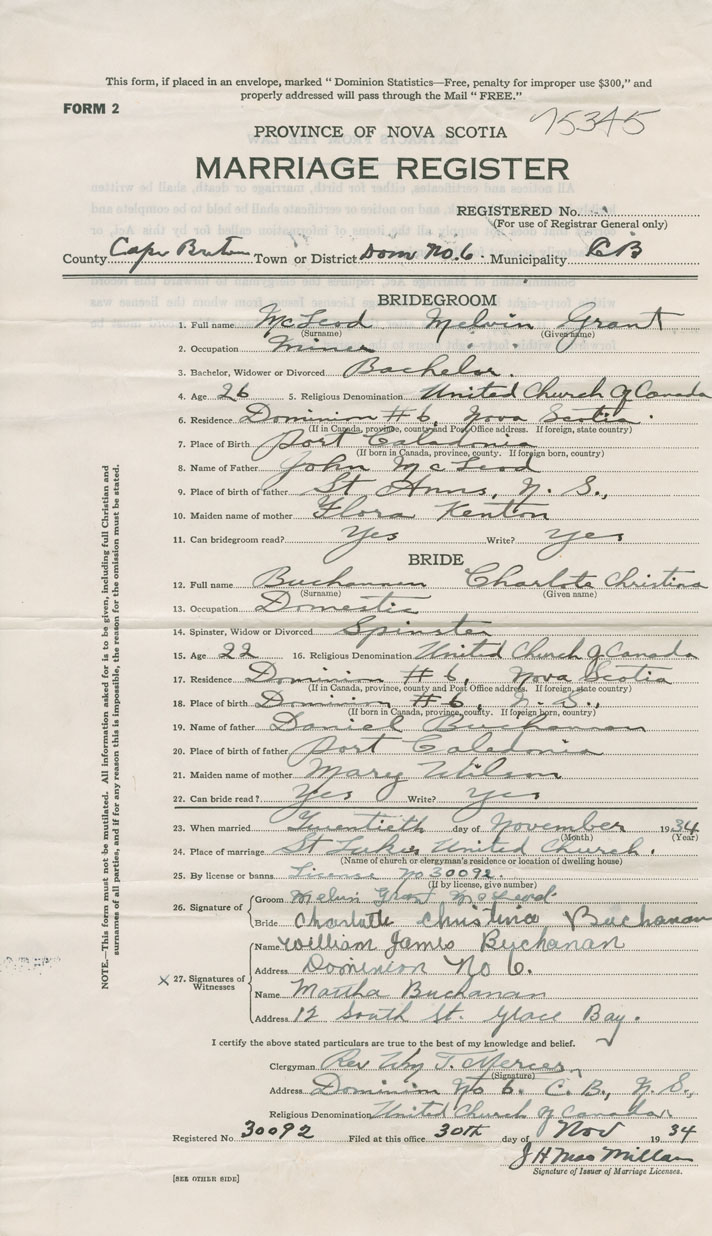 This form, if placed in an envelope, marked " Dominion Statistics—Free, penalty for improper use $300," and
properly addressed will pass through the Mail " FREE."
FORM 2
75345
PROVINCE OF NOVA SCOTIA
MARRIAGE REGISTER
REGISTERED No.
(For use of Registrar General only)
County Cape Breton Town or District Dom No. 6. Municipality C B
BRIDEGROOM
1. Full name McLeod Melvin Grant
(Surname) (Given name)
2. Occupation Miner
3. Bachelor, Widower or Divorced Bachelor.
4. Age 26 5. Religious Denomination United Church of Canada
6. Residence Dominion #6, Nova Scotia.
(If in Canada, province, county and Post Office address. If foreign, state country)
7. Place of Birth Port Caledonia
(If born in Canada, province, county. If foreign born, country)
8. Name of Father John McLeod
9. Place of birth of father St Anns, N. S.,
10. Maiden name of mother Flora Kenton
11. Can bridegroom read? Yes Write? Yes
BRIDE
12. Full name Buchannan Charlote Christina
(Surname) (Given name)
13. Occupation Domestic
14. Spinster, Widow or Divorced Spinster
15. Age 22 16. Religious Denomination United Church of Canada
17. Residence Dominion #6, Nova Scotia
(If in Canada, province, county and Post Office address. If foreign, state country)
18. Place of Birth Dominion #6, N. S.,
(If born in Canada, province, county. If foreign born, country)
19. Name of father Daniel Buchannan
20. Place of birth of father Port Caledonia
21. Maiden name of mother Mary Wilson
22. Can bride read? Yes Write? Yes
23. When married Twentieth day of November 1934
(Month) (Year)
24. Place of marriage St Lukes United Church.
(Name of church or clergyman's residence or location of dwelling house)
25. By license or banns License No 30092.
(If by license, give number)
26. Signature of Groom Melvin Grant McLeod
Bride Charlotte Christina Buchanan
27. Signatures of Witnesses
Name William James Buchanan
Address Dominion No 6.
Name Martha Buchanan
Address 12 South St. Glace Bay.
I certify the above stated particulars are true to the best of my knowledge and belief.
Clergyman Rev Wm T. Mercer
(Signature)
Address Dominion No 6. C. B., N. S.,
Religious Denomination United Church of Canada.
Registered No. 30092 Filed at this office 30th day of Nov 1934
J H MacMillan
Signature of Issuer of Marriage Licenses.
[SEE OTHER SIDE]
NOTE.—This form must not be mutilated. All information asked for is to be given, including full Christian and
surnames of all parties, and if for any reason this is impossible, the reason for the omission must be stated.